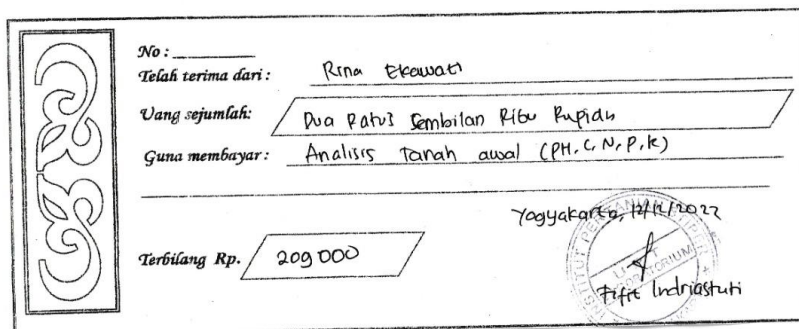 No :
Telah terima dari : Rina Ekawati
Uang sejumlah: Dua Ratus Sembilan Ribu Rupiah
Guna membayar : Analisis Tanah awal (PH, C, N, P, K)
Yogyakarta, 12/12/2022
Terbilang Rp. 209 000
INSTITUT PERTANIAN STIPER
LABORATORIUM
Fifit Indriastuti